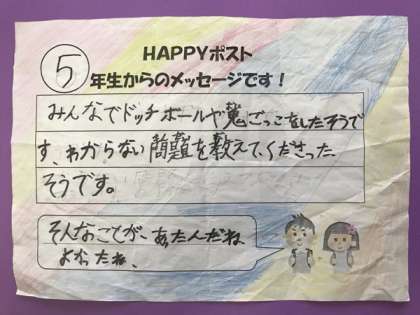 HAPPYポスト
5年生からのメッセージです！
みんなでドッチボールや鬼ごっこをしたそうで
す、わからない問題を教えてくださった
そうです。
そんなことが、あったんだね
よかったね、